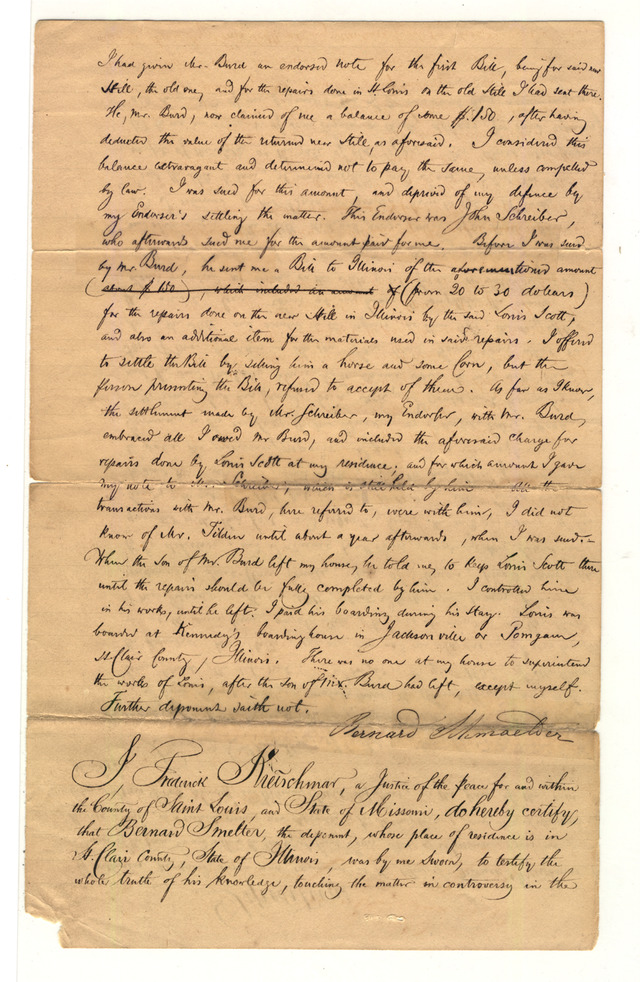 I had given Mr. Burd an endorsed note for the first Bill, being for said new
Still, the old one, and for the repairs done in St Louis on the old Still I had sent there.
He, Mr. Burd, now claimed of me a balance of some $150, after having
deducted the value of the returned new Still as aforesaid. I considered this
balance extravagant and determined not to pay the same, unless compelled
by law. I was sued for this amount, and deprived of my defence by
my Endorser's settling the matter. This Endorser was John Schreiber,
who afterwards sued me for the amount paid for me. Before I was sued
by Mr. Burd, he sent me a Bill to Illinois of the amount
(about $150), which included an amount of (from 20 to 30 dollars)
for the repairs done on the new Still in Illinois by the said Louis Scott,
and also an additional item for the materials used in said repairs. I offered
to settle the Bill by selling him a horse and some Corn, but the
person presenting the Bill, refused to accept of them. As far as I know,
the settlement made by Mr. Schreiber, my Endorser, with Mr. Burd,
embraced all I owed Mr Burd, and included the aforesaid charge for
repairs done by Louis Scott at my residence, and for which amount I gave
my note to Mr. Schreiber, which is still held by him All the
transactions with Mr. Burd, here referred to, were with him, I did not
know of Mr. Tilden until about a year afterwards, when I was sued.-
When the son of Mr. Burd left my house, he told me, to keep Louis Scott there
until the repairs should be fully completed by him. I controlled him
in his works, until he left. I paid his boarding during his stay. Louis was
boarded at Kennedy's boardinghouse in Jacksonville or
St Clair County, Illinois. There was no one at my house to superintend
the works of Louis, after the son of Mr. Burd had left, except myself.
Further deponent saith not.
Bernard Schmaelder
I, Frederick Kretschmar, a Justice of the Peace for and within
the County of Saint Louis, and State of Missouri, do hereby certify,
that Bernard Smelter, the deponent, whose place of residence is in
St. Clair County, State of Illinois, was by me Sworn, to testify the
whole truth of his knowledge, touching the matter in controversy in the